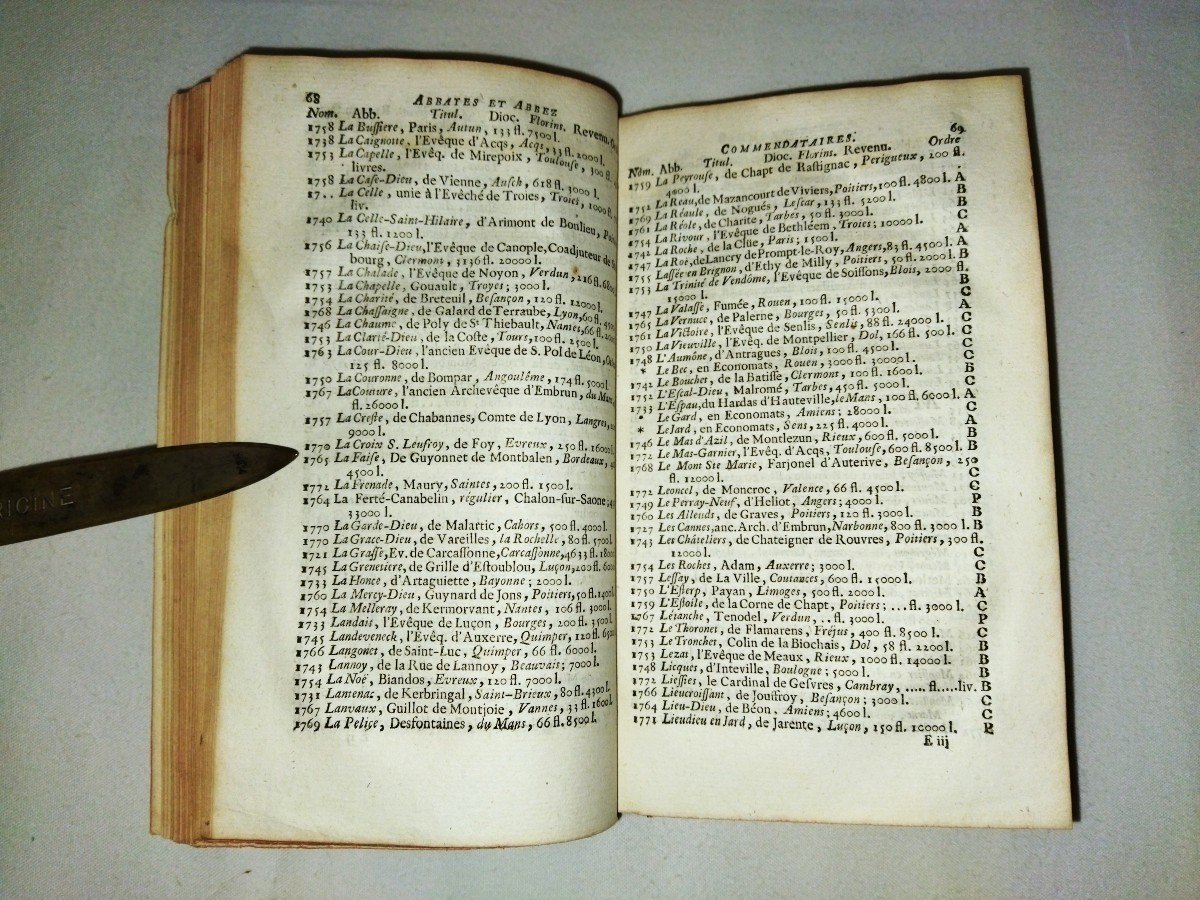 68 ABBAYES ET ABBEZ
Nom. Abb. Titul. Dioc. Florins. Revenu.
1758 La Buſſiere, Paris, Autun, 133 fl. 7500 l.
1738 La Caignotte, l'Evêque d'Acqs, Acqs, 33 fl. 2000 l.
1753 La Capelle, l'Evêq. de Mirepoix, Toulouſe, 300 fl.
livres.
1758 La Caſe-Dieu, de Vienne, Auſch, 618 fl. 3000 l.
17.. La Celle, unie à l'Evêché de Troies, Troies, 1000 fl.
liv.
1740 La Celle-Saint-Hilaire, d'Arimont de Boulieu,
133 fl. 1200 l.
1756 La Chaiſe-Dieu, l'Evêque de Canople, Coadjuteur de
bourg, Clermont, 3136 fl. 20000 l.
1757 La Chalade, l'Evêque de Noyon, Verdun, 216 fl. 6800
1753 La Chapelle, Gouault, Troyes; 3000 l.
1754 La Charité, de Breteuil, Beſançon, 120 fl. 12000 l.
1768 La Chaſſaigne, de Galard de Terraube, Lyon, 60 fl.
1746 La Chaume, de Poly de St Thiebault, Nantes, 66 fl.
1753 La Clarté-Dieu, de la Coſte, Tours, 100 fl. 2500
1763 La Cour-Dieu, l'ancien Evêque de S. Pol de Léon,
125 fl. 8000 l.
1750 La Couronne, de Bompar, Angoulême, 174 fl. 5000 l.
1767 La Couture, l'ancien Archevêque d'Embrun, du Mans,
fl. 26000 l.
1757 La Creſte, de Chabannes, Comte de Lyon, Langres,
9000 l.
1770 La Croix S. Leufroy, de Foy, Evreux, 250 fl. 1600 l.
1765 La Faiſe, De Guyonnet de Montbalen, Bordeaux,
4500 l.
1772 La Frenade, Maury, Saintes, 200 fl. 1500 l.
1764 La Ferté-Canabelin, régulier, Chalon-ſur-Saone;
33000 l.
1770 La Garde-Dieu, de Malartic, Cahors, 500 fl. 4000 l.
1770 La Grace-Dieu, de Vareilles, la Rochelle, 80 fl. 5700 l.
1721 La Graſſe, Ev. de Carcaſſonne, Carcaſſonne, 4633 fl. 18000
1745 La Grenetiere, de Grille d'Eſtoublou, Luçon, 200 fl.
1733 La Honce, d'Artaguiette, Bayonne; 2000 l.
1760 La Mercy-Dieu, Guynard de Jons, Poitiers, 50 fl. 1400 l.
1754 La Melleray, de Kermorvant, Nantes, 106 fl. 3000 l.
1733 Landais, l'Evêque de Luçon, Bourges, 200 fl. 3500
1745 Landeveneck, l'Evêq. d'Auxerre, Quimper, 120 fl. 6500
1766 Langonet, de Saint-Luc, Quimper, 66 fl. 6000 l.
1743 Lannoy, de la Rue de Lannoy, Beauvais; 7000 l.
1754 La Noë, Biandos, Evreux, 120 fl. 7000 l.
1731 Lantenac, de Kerbringal, Saint-Brieux, 80 fl. 4300 l.
1767 Lanvaux, Guillot de Montjoie, Vannes, 33 fl. 1600 l.
1769 La Peliçe, Desfontaines, du Mans, 66 fl. 8500 l.
COMMENDATAIRES. 69
Nom. Abb. Titul. Dioc. Florins. Revenu. Ordre
1759 La Peyrouſe, de Chapt de Raſtignac, Perigueux, 200 fl.
4000 l.
1752 La Reau, de Mazancourt de Viviers, Poitiers, 100 fl. 4800 l. A
1769 La Réaule, de Nogués, Leſcar, 133 fl. 5200 l. B
1761 La Réole, de Charite, Tarbes, 50 fl. 3000 l. B
1754 La Rivour, l'Evêque de Bethléem, Troies; 10000 l. C
1742 La Roche, de la Clüe, Paris; 1500 l. A
1747 La Roé, de Lancry de Prompt-le-Roy, Angers, 83 fl. 4500 l. A
1755 Laſſée en Brignon, d'Ethy de Milly, Poitiers, 50 fl. 2000 l. B
1753 La Trinité de Vendôme, l'Evêque de Soiſſons, Blois, 2000 fl.
15000 l. B
1747 La Valaſſe, Fumée, Rouen, 100 fl. 15000 l. C
1765 La Vernuce, de Palerne, Bourges, 50 fl. 5300 l. A
1761 La Victoire, l'Evêque de Senlis, Senlis, 88 fl. 24000 l. C
1750 La Vieuville, l'Evêq. de Montpellier, Dol, 166 fl. 500 l. C
1748 L'Aumône, d'Antragues, Blois, 100 fl. 4500 l. C
* Le Bec, en Economats, Rouen, 3000 fl. 30000 l. B
1742 Le Bouchet, de la Batiſſe, Clermont, 100 fl. 1600 l. C
1752 L'Eſcal-Dieu, Malromé, Tarbes, 450 fl. 5000 l. C
1733 L'Eſpau, du Hardas d'Hauteville, le Mans, 100 fl. 6000 l. C
* Le Gard, en Economats, Amiens; 28000 l. C
* Le Jard, en Economats, Sens, 225 fl. 4000 l. A
1746 Le Mas d'Azil, de Montlezun, Rieux, 600 fl. 5000 l. B
1772 Le Mas-Garnier, l'Evêq. d'Acqs, Toulouſe, 600 fl. 8500 l. B
1768 Le Mont Ste Marie, Farjonel d'Auterive, Beſançon, 250
fl. 12000 l. C
1772 Leoncel, de Moncroc, Valence, 66 fl. 4500 l. C
1749 Le Perray-Neuf, d'Heliot, Angers; 4000 l. P
1760 Les Alleuds, de Graves, Poitiers, 120 fl. 3000 l. B
1727 Les Cannes, anc. Arch. d'Embrun, Narbonne, 800 fl. 3000 l. B
1743 Les Châteliers, de Chateigner de Rouvres, Poitiers, 300 fl.
12000 l. C
1754 Les Roches, Adam, Auxerre; 3000 l. C
1757 Leſſay, de La Ville, Coutances, 600 fl. 15000 l. B
1750 L'Eſterp, Payan, Limoges, 500 fl. 2000 l. A
1759 L'Eſtoile, de la Corne de Chapt, Poitiers; ... fl. 3000 l. C
1767 Létanche, Tenodel, Verdun, .. fl. 3000 l. P
1772 Le Thoronet, de Flamarens, Fréjus, 400 fl. 8500 l. C
1753 Le Tronchet, Colin de la Biochais, Dol, 58 fl. 2200 l. B
1753 Lezat, l'Evêque de Meaux, Rieux, 1000 fl. 14000 l. B
1748 Licques, d'Inteville, Boulogne; 5000 l. B
1772 Lieſſies, le Cardinal de Geſvres, Cambray, ..... fl. ... liv. B
1766 Lieucroiſſant, de Jouffroy, Beſançon; 3000 l. C
1764 Lieu-Dieu, de Béon, Amiens; 4600 l. C
1771 Lieudieu en Jard, de Jarente, Luçon, 150 fl. 10000 l.
E iij